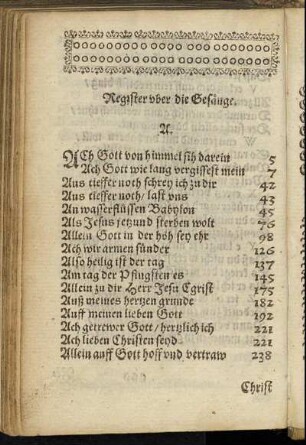 Register vber die Gesånge.
A.
ACh Gott von himmel sih darein 5
Ach Gott wie lang vergissest mein 7
Aus tieffer noth schrey ich zu dir 42
Aus tieffer noth / last vns 43
An wasserflüssen Babylon 45
Als Jesus jetzund sterben wolt 76
Allein Gott in der höh sey ehr 98
Ach wir armen sünder 126
Also heilig ist der tag 137
Am tag der Pfingsten es 145
Allein zu dir Herr Jesu Egrist 175
Auß meines hertzen grunde 182
Auff meinen lieben Gott 192
Ach getrewer Gott / hertzlich ich 221
Ach lieben Christen seyd 221
Allein auff Gott hoff vnd vertraw 238
Christ